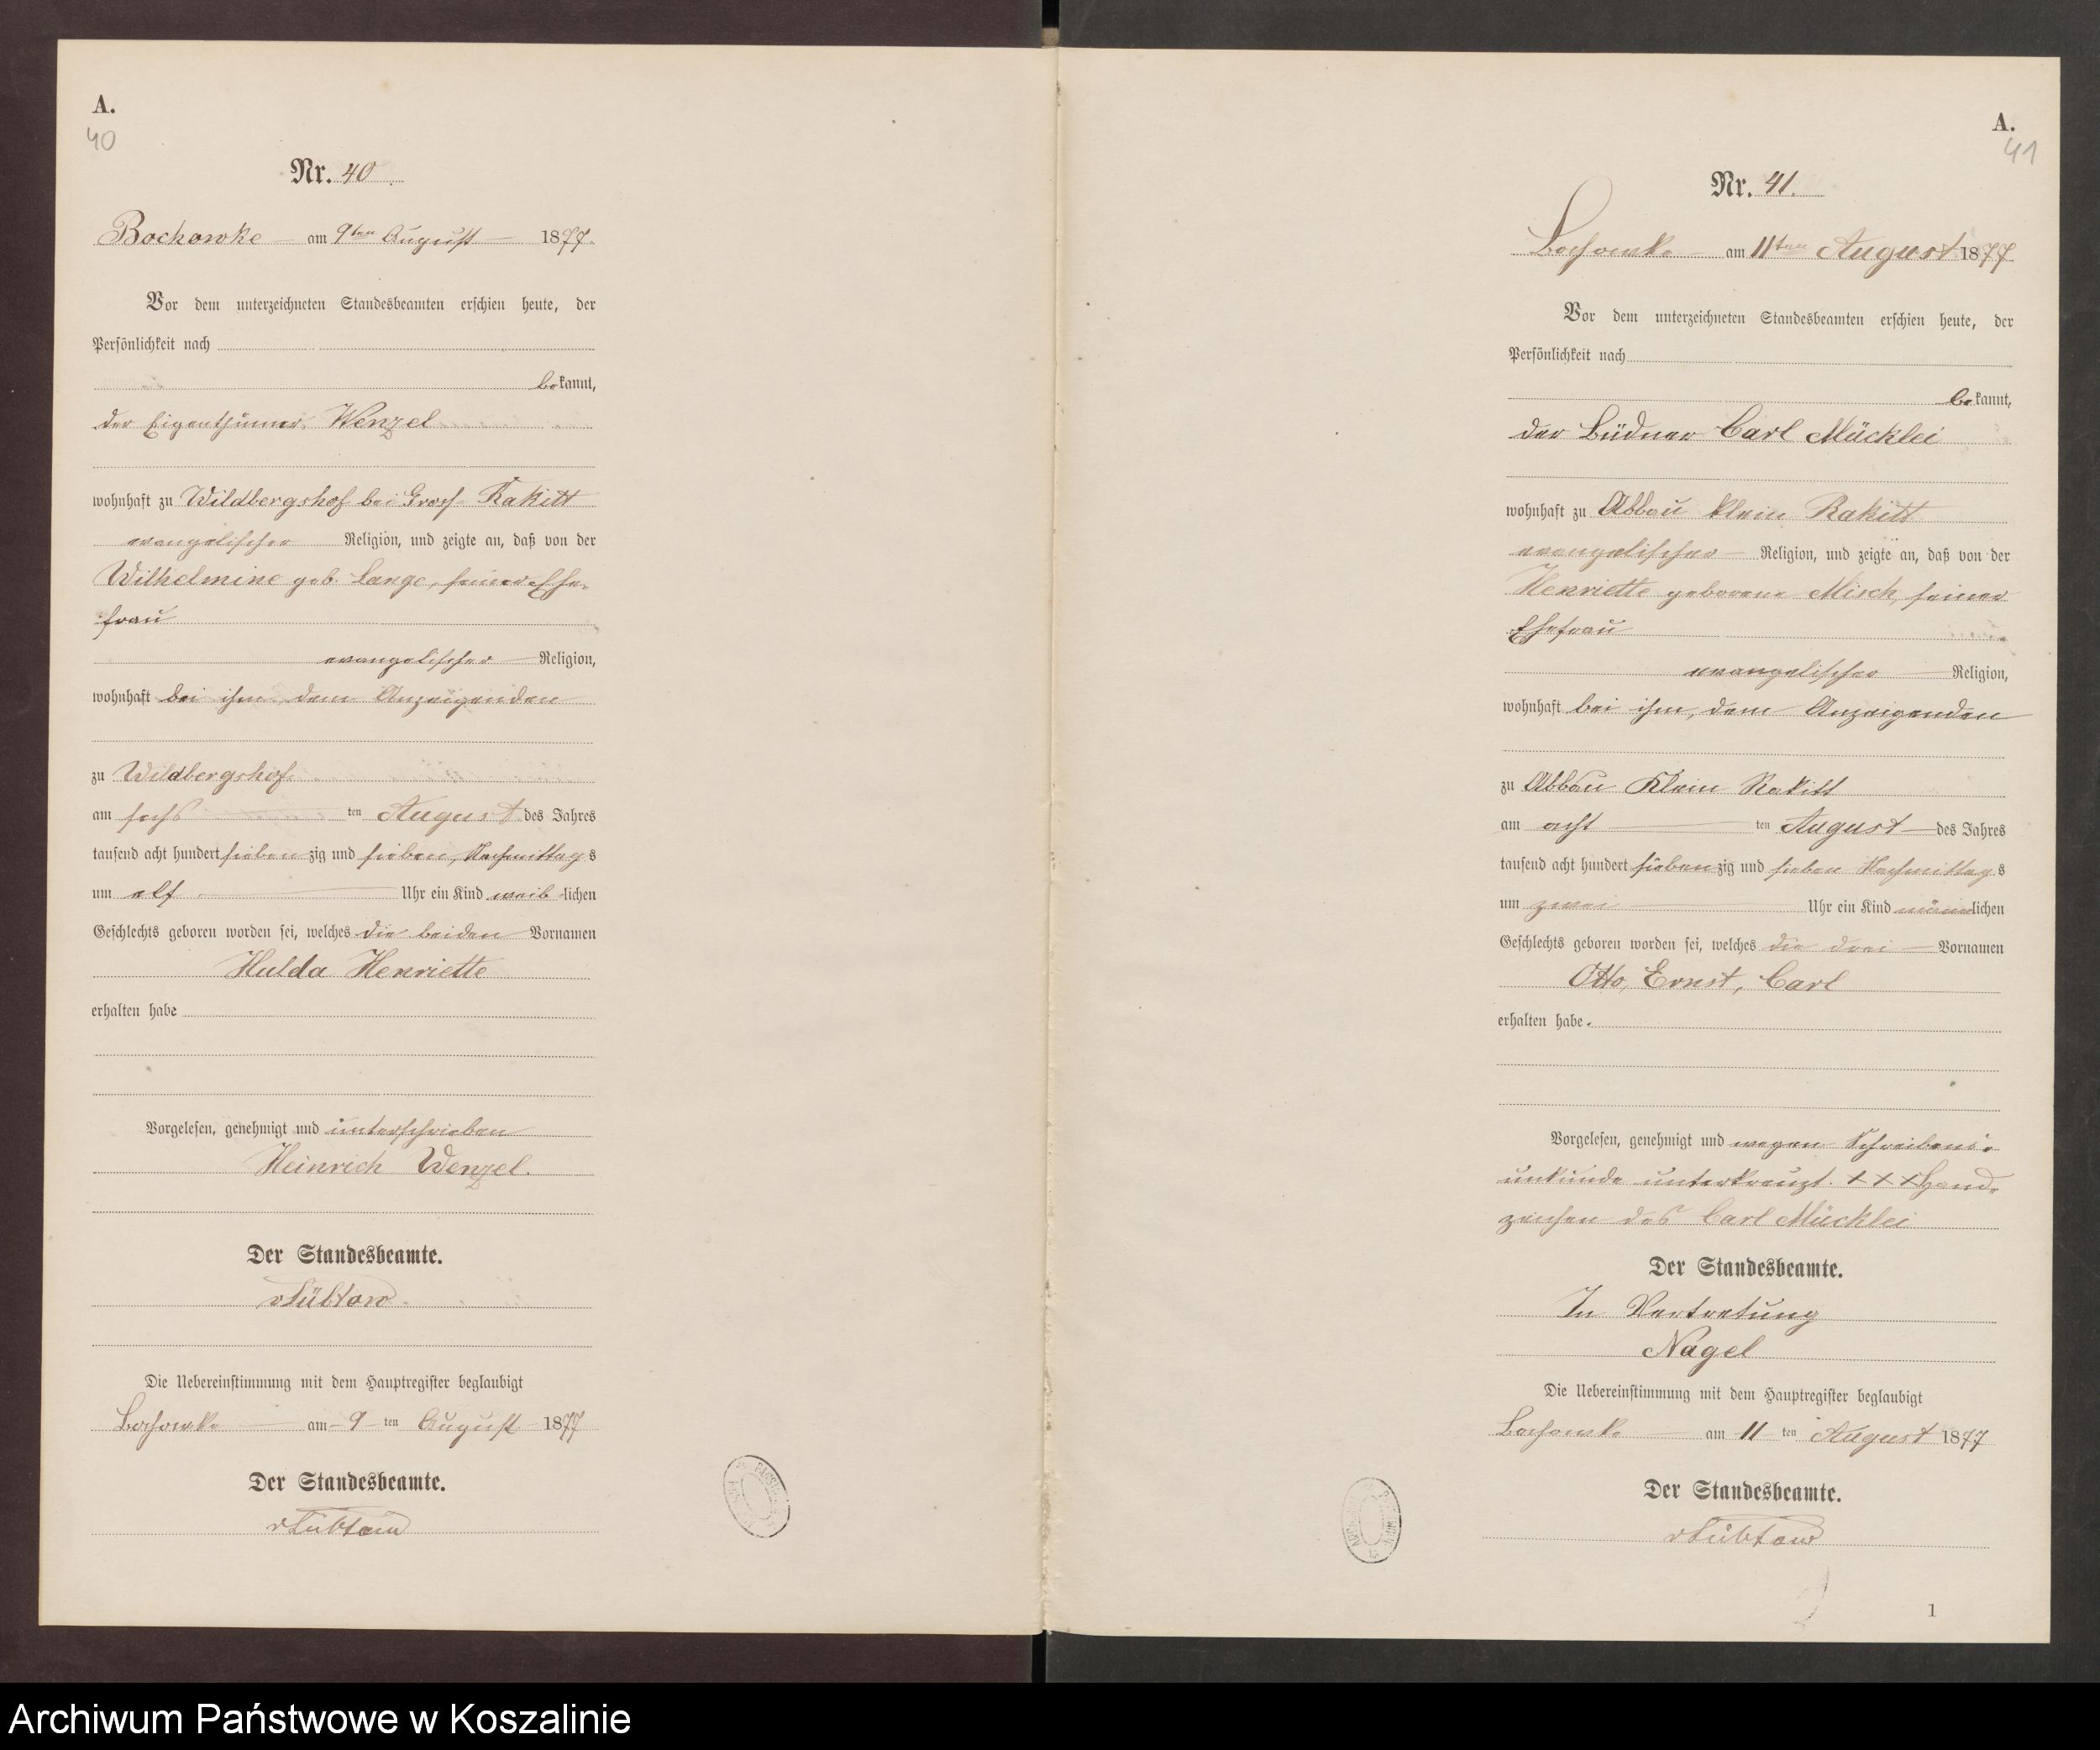 A.
40
Nr. 40
Bochowke am 9ten August 1877.
Vor dem unterzeichneten Standesbeamten erschien heute, der
Persönlichkeit nach
bekannt,
der Eigenthümer Wenzel
wohnhaft zu Wildbergshof bei Gross Rakitt
evangelischer Religion, und zeigte an, daß von der
Wilhelmine geb. Lange, seiner Ehe-
frau
evangelischer Religion,
wohnhaft bei ihm, dem Anzeigenden
zu Wildbergshof
am sechs ten August des Jahres
tausend acht hundert siebenzig und sieben, Nachmittags
um elf Uhr ein Kind weiblichen
Geschlechts geboren worden sei, welches die beiden Vornamen
Hulda Henriette
erhalten habe
Vorgelesen, genehmigt und unterschrieben
Heinrich Wenzel.
Der Standesbeamte.
vTübtow
Die Uebereinstimmung mit dem Hauptregister beglaubigt
Bochowke am 9 ten August 1877
Der Standesbeamte.
vTübtow
A.
41
Nr. 41.
Bochowke am 11ten August 1877
Vor dem unterzeichneten Standesbeamten erschien heute, der
Persönlichkeit nach
bekannt,
der Büdner Carl Mücklei
wohnhaft zu Abbau Klein Rakitt
evangelischer Religion, und zeigte an, daß von der
Henriette geborene Misch, seiner
Ehefrau
evangelischer Religion,
wohnhaft bei ihm, dem Anzeigenden
zu Abbau Klein Rakitt
am acht ten August des Jahres
tausend acht hundert siebenzig und sieben Nachmittags
um zwei Uhr ein Kind männlichen
Geschlechts geboren worden sei, welches die drei Vornamen
Otto, Ernst, Carl
erhalten habe.
Vorgelesen, genehmigt und wegen Schreibens-
unkunde unterkreuzt. + + + Hand-
zeichen des Carl Mücklei
Der Standesbeamte.
In Vertretung
Nagel
Die Uebereinstimmung mit dem Hauptregister beglaubigt
Bochowke am 11 ten August 1877
Der Standesbeamte.
vTübtow
1
Archiwum Państwowe w Koszalinie